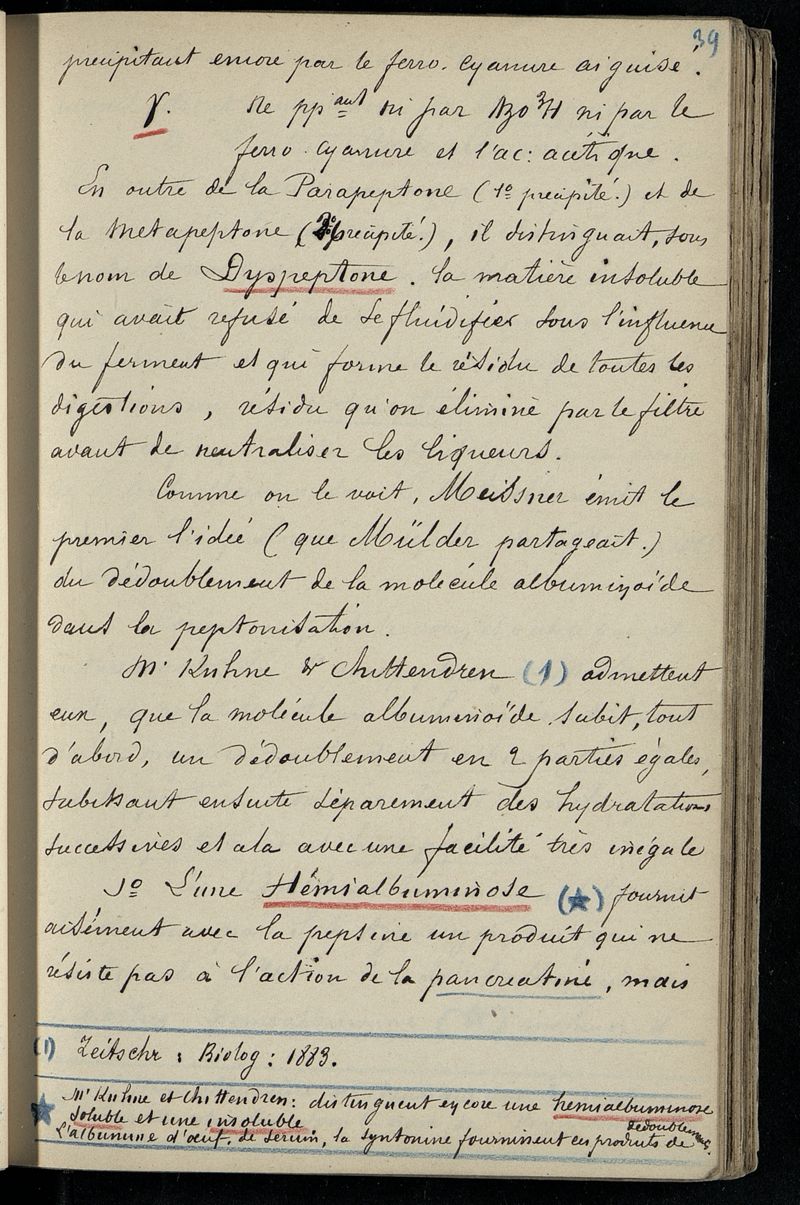 39
precipitant encore par le ferro-cyanure aiguisé.
γ. Ne ppant ni par Azo3H ni par le
ferro-cyanure et l'ac: acétique.
En outre de la Parapeptone (1o precipité.) et de
la Metapeptone (2o précipité.), il distinguait, sous
le nom de Dyspeptone. la matière insoluble
qui avait refusé de se fluidifier sous l'influence
du ferment et qui forme le résidu de toutes les
digestions, résidu qu'on élimine par le filtre
avant de neutraliser les liqueurs.
Comme on le voit, Meissner émit le
premier l'idée (que Mülder partageait.)
du dédoublement de la molécule albuminoïde
dans la peptonisation.
Mr Kuhne & Chittendren (1) admettent
eux, que la molécule albuminoïde subit, tout
d'abord, un dédoublement en 2 parties égales,
subissant ensuite séparement des hydratations
successives et cela avec une facilité très inégale
1o L'une Hémialbuminose (★) fournit
aisément avec la pepsine un produit qui ne
résiste pas à l'action de la pancreatine, mais
(1) Zeitschr: Biolog: 1883.
★ Mr Kuhne et Chittendren: distinguent encore une hemialbuminose
soluble et une insoluble
L'albumine d'œuf, de serum, la syntonine fournissent ces produits de dédoublement.